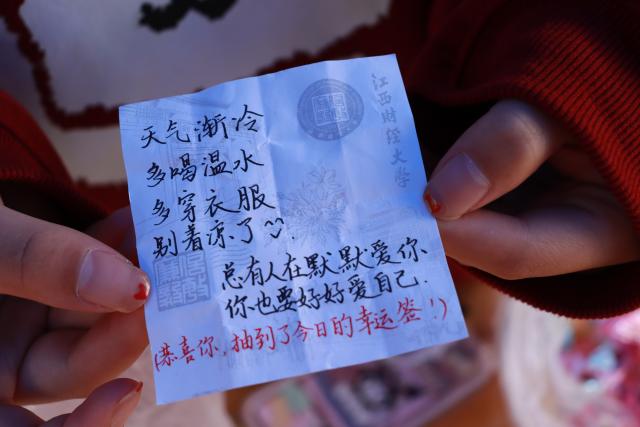 江西财经大学
天气渐冷
多喝温水
多穿衣服
别着凉了
总有人在默默爱你
你也要好好爱自己.
(恭喜你,抽到了今日的幸运签!)